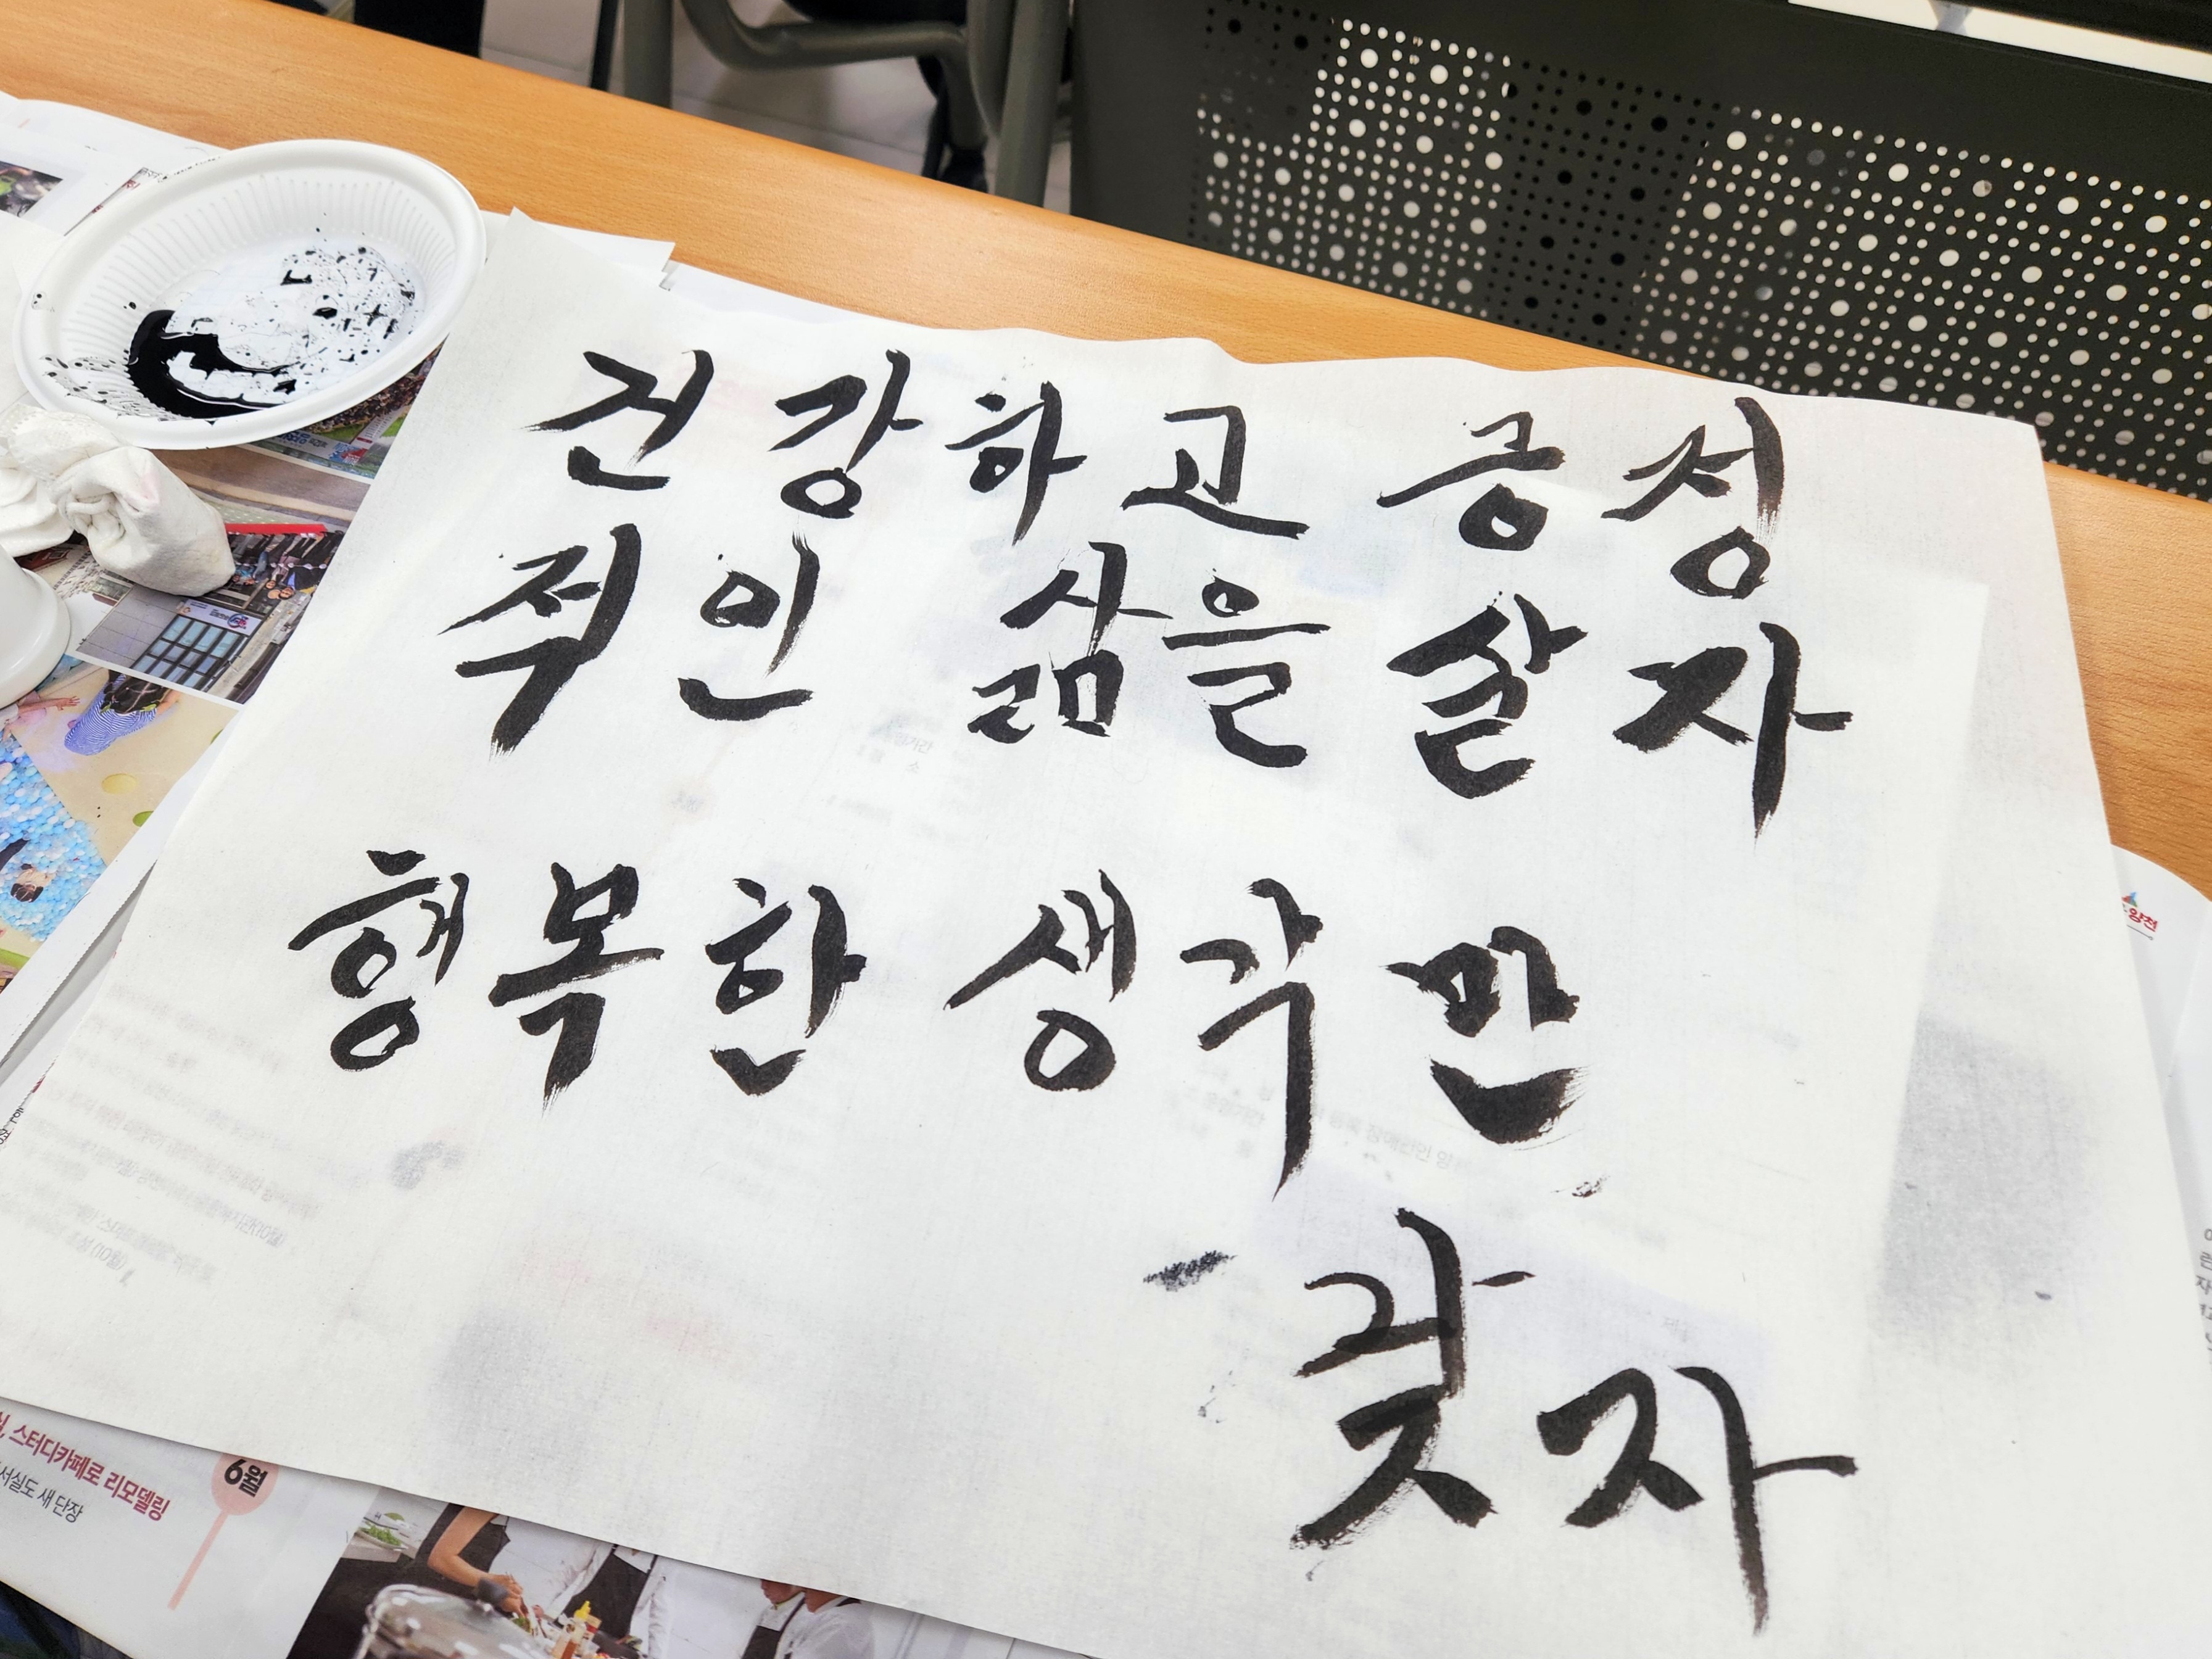 건강하고 긍정
적인 삶을 살자
행복한 생각만
갖자
양천
스터디카페로 리모델링
서실도 새 단장
6월